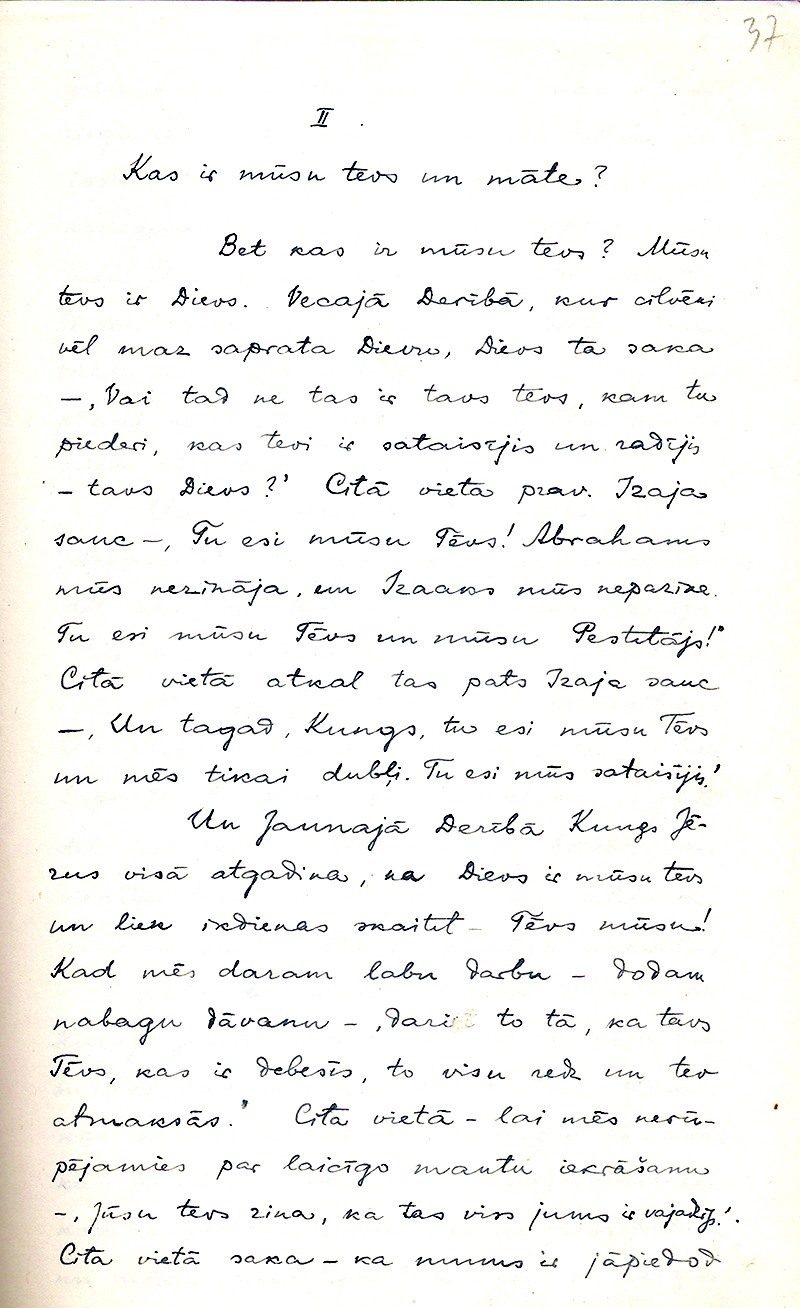 37
II.
Kas ir mūsu tevs un māte?
Bet kas ir mūsu tevs? Mūsu
tevs ir Dievs. Vecajā Derībā, kur cilvēki
vēl maz saprata Dievu, Dievs ta saka
—, Vai tad ne tas ir tavs tevs, kam tu
piederi, kas tevi ir sataisījis un radījis
– tavs Dievs?' Citā vieta prav. Izaja
sauc –, Tu esi mūsu Tēvs! Abrahams
mūs nezināja, un Izaaks mūs nepazine.
Tu esi mūsu Tēvs un mūsu Pestītājs!"
Citā vietā atkal tas pats Izaja sauc
—, Un tagad, Kungs, tu esi mūsu Tēvs
un mēs tikai dubļi. Tu esi mūs sataisījis!'
Un Jaunajā Derībā Kungs Jē-
zus visā atgadina, ka Dievs ir mūsu tevs
un liek ikdienas skaitīt – Tēvs mūsu!
Kad mēs daram labu darbu – dodam
nabagu dāvanu –, dari to tā, ka tavs
Tēvs, kas ir debesīs, to visu redz un tev
atmaksās.' Cita vietā – lai mēs nerū-
pējamies par laicīgo mantu iekrāšanu
–, Jūsu tevs zina, ka tas viss jums ir vajadzīgs!'.
Cita vietā saka – ka mums ir jāpiedod